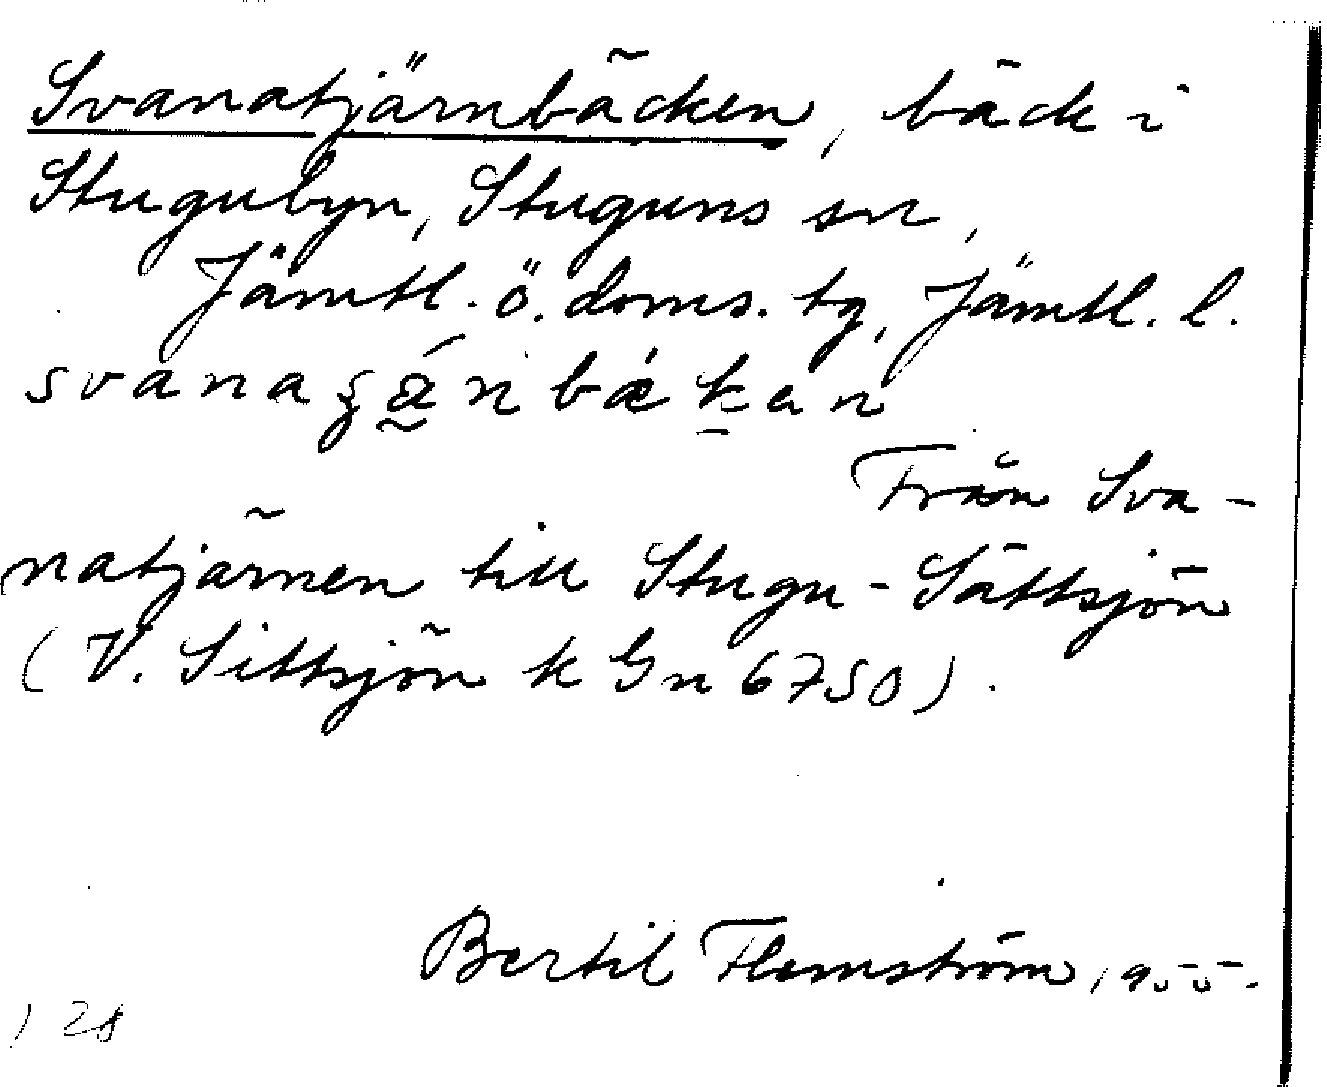 Svanatjärnbäcken, bäck i
Stugubyn, Stuguns sn,
Jämtl. ö. doms. tg, Jämtl. l.
Från Sva-
natjärnen till Stugu-Sättsjön
(V. Sittsjön k Gn 6750).
Bertil Flemström, 1955.